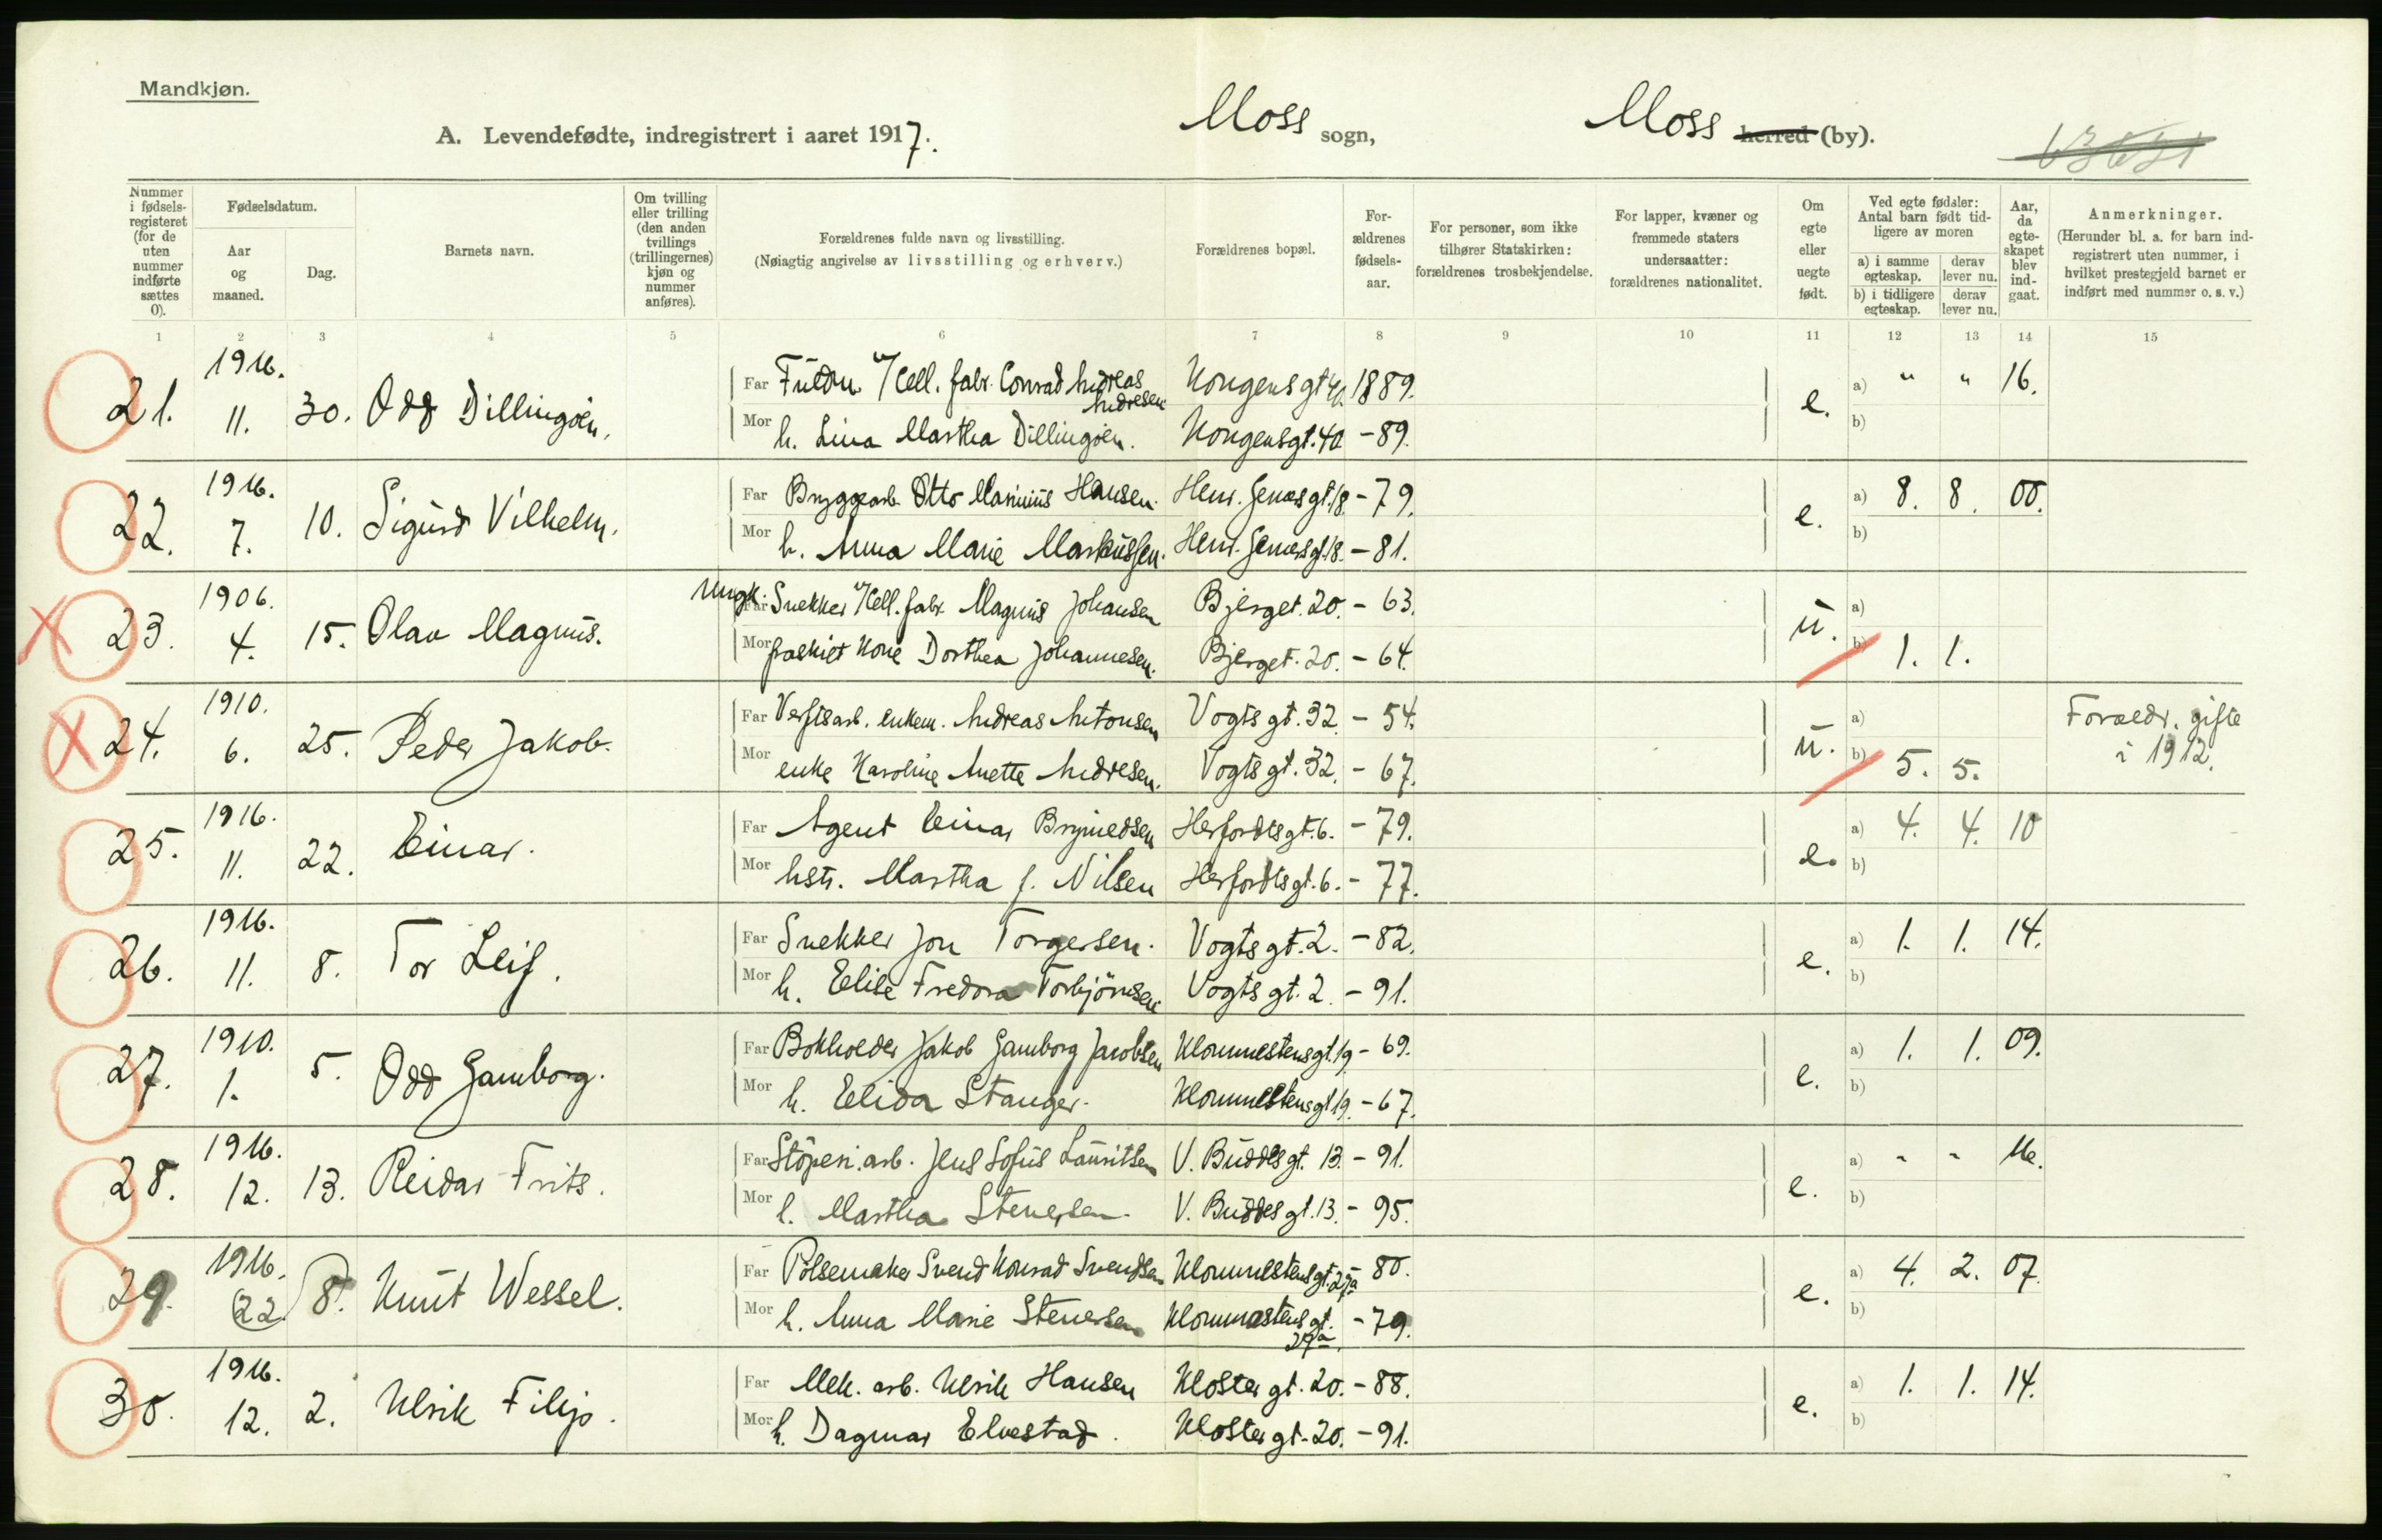 Mandkjøn.
A. Levendefødte, indregistrert i aaret 1917. Moss sogn, Moss herred (by).
Nummer i fødsels-registeret (for de uten nummer indførte sættes 0).
Fødselsdatum.
Aar og maaned.
Dag.
Barnets navn.
Om tvilling eller trilling (den anden tvillings (trillingernes) kjøn og nummer anføres).
Forældrenes fulde navn og livsstilling.
(Nøiagtig angivelse av livsstilling og erhverv.)
Forældrenes bopæl.
For-ældrenes fødsels-aar.
For personer, som ikke tilhører Statskirken: forældrenes trosbekjendelse.
For lapper, kvæner og fremmede staters undersaatter: forældrenes nationalitet.
Om egte eller uegte født.
Ved egte fødsler: Antal barn født tid-ligere av moren
a) i samme egteskap. derav lever nu.
b) i tidligere egteskap. derav lever nu.
Aar, da egte-skapet blev ind-gaat.
Anmerkninger.
(Herunder bl. a. for barn ind-registrert uten nummer, i hvilket prestegjeld barnet er indført med nummer o. s. v.)
1 2 3 4 5 6 7 8 9 10 11 12 13 14 15
21. 1916. 11. 30. Odd Dillingøen. Far Cell. fabr. Conrad Andreas Andresen Kongensgt. 40 1889. e. a) " " 16.
Mor h. Lina Martha Dillingøen. Kongensgt. 40 - 89. b)
22. 1916. 7. 10. Sigurd Vilhelm. Far Bryggearb. Otto Marinius Hansen. Henr. Gernersgt. 18 - 79. e. a) 8. 8. 00.
Mor h. Anna Marie Markussen. Henr. Gernersgt. 18. - 81. b)
23. 1906. 4. 15. Olav Magnus. Ungk. Far Snekker v/Cell. fabr. Magnus Johansen Bjerget. 20. - 63. u. a)
Mor fraskilt Kone Dorthea Johannesen. Bjerget. 20. - 64. b) 1. 1.
24. 1910. 6. 25. Peder Jakob. Far Verftsarb. enkem. Andreas Antonsen Vogts gt. 32. - 54. u. a) Foraeldr. gifte
Mor enke Karoline Anette Andresen. Vogts gt. 32. - 67. b) 5. 5. i 1912.
25. 1916. 11. 22. Einar. Far Agent Einar Bryniedsen Herfordtsgt. 6. - 79. e. a) 4. 4. 10
Mor hstr. Martha J. Nilsen Herfordtsgt. 6. - 77. b)
26. 1916. 11. 8. Tor Leif. Far Snekker Jon Torgersen. Vogts gt. 2. - 82. e. a) 1. 1. 14.
Mor h. Elise Fredora Torbjörnsen Vogts gt. 2. - 91. b)
27. 1910. 1. 5. Odd Gamborg. Far Bokholder Jakob Gamborg Jacobsen Klommestensgt. 19 - 69. e. a) 1. 1. 09.
Mor h. Elida Stanger. Klommestensgt 19. - 67. b)
28. 1916. 12. 13. Reidar Frits. Far Stöperi. arb. Jens Sofus Lauritsen V. Buddes gt. 13. - 91. e. a) " " 16.
Mor h. Martha Stenersen. V. Buddes gt. 13. - 95. b)
29. 1916. 22 8. Knut Wessel. Far Pölsemaker Svend Konrad Svendsen Klommestensgt. 27a - 80. e. a) 4. 2. 07.
Mor h. Anna Marie Stenersen Klommestensgt. 27a. - 79. b)
30. 1916. 12. 2. Ulrik Filip. Far Mek. arb. Ulrik Hansen Kloster gt. 20. - 88. e. a) 1. 1. 14.
Mor h. Dagmar Elvestad. Kloster gt. 20. - 91. b)